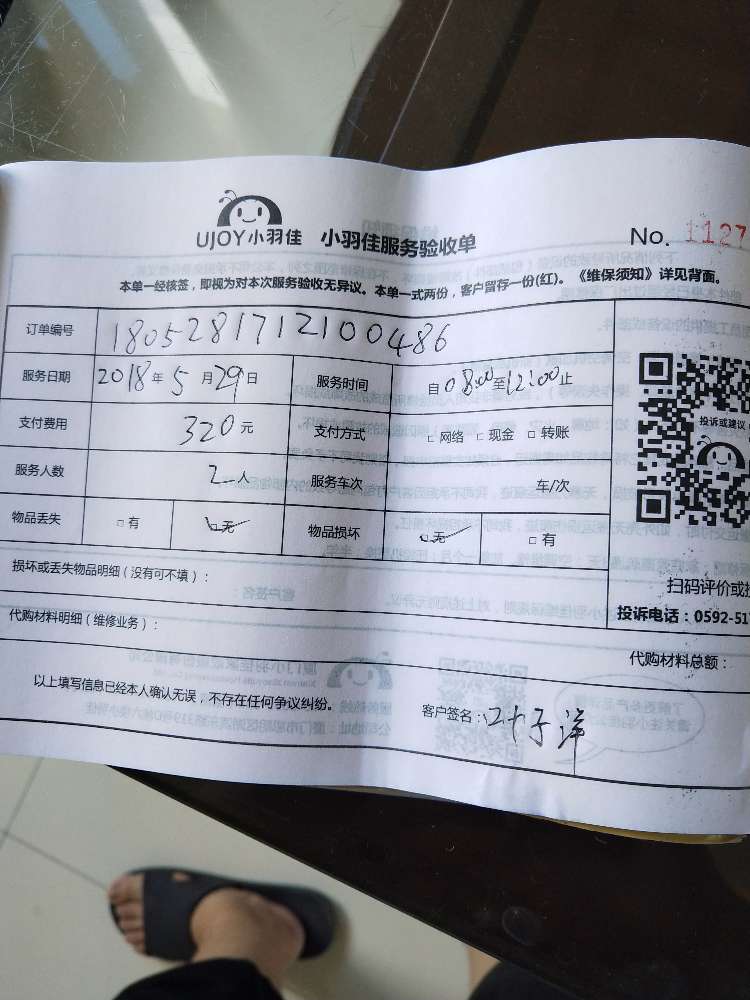 UJOY小羽佳 小羽佳服务验收单 No. 1127
本单一经核签，即视为对本次服务验收无异议。本单一式两份，客户留存一份(红)。《维保须知》详见背面。
订单编号 1805281712100486
服务日期 2018年5月29日 服务时间 自08:00至12:00止
支付费用 320元 支付方式 □网络 □现金 □转账
投诉或建议
服务人数 2人 服务车次 车/次
物品丢失 □有 ☑无 物品损坏 ☑无 □有
损坏或丢失物品明细(没有可不填)：
扫码评价或
投诉电话：0592-517
代购材料明细(维修业务)：
代购材料总额：
以上填写信息已经本人确认无误，不存在任何争议纠纷。
客户签名：叶子洋